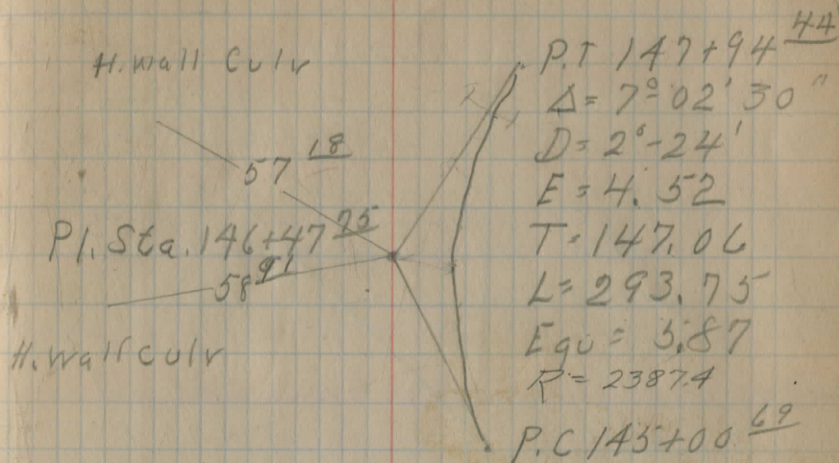 H. Wall Culv
57 18
P.I. Sta. 146+47 75
58 91
H. Wall Culv
P.T 147+94 44
Δ= 7°-02'30"
D= 2°-24'
E= 4.52
T= 147.06
L= 293.75
Equ = 5.87
R= 2387.4
P.C 145+00 69